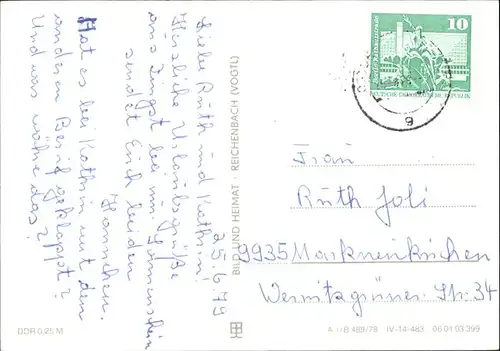 25.6.79
Liebe Ruth und Kathrin!
Herzliche Urlaubsgrüße
aus Zingst bei nur Sonnenschein
sendet Euch beiden
Hannchen.
Hat es bei Kathrin mit den
anderen Beruf geklappt?
Und was wähe das?
BILD UND HEIMAT · REICHENBACH (VOGTL)
10
DEUTSCHE DEMOKRATISCHE REPUBLIK
Frau
Ruth Joli
9935 Markneukirchen
Wernitzgrüner-Str. 34
DDR 0,25 M
B 489/78 IV-14-483 06 01 03 399